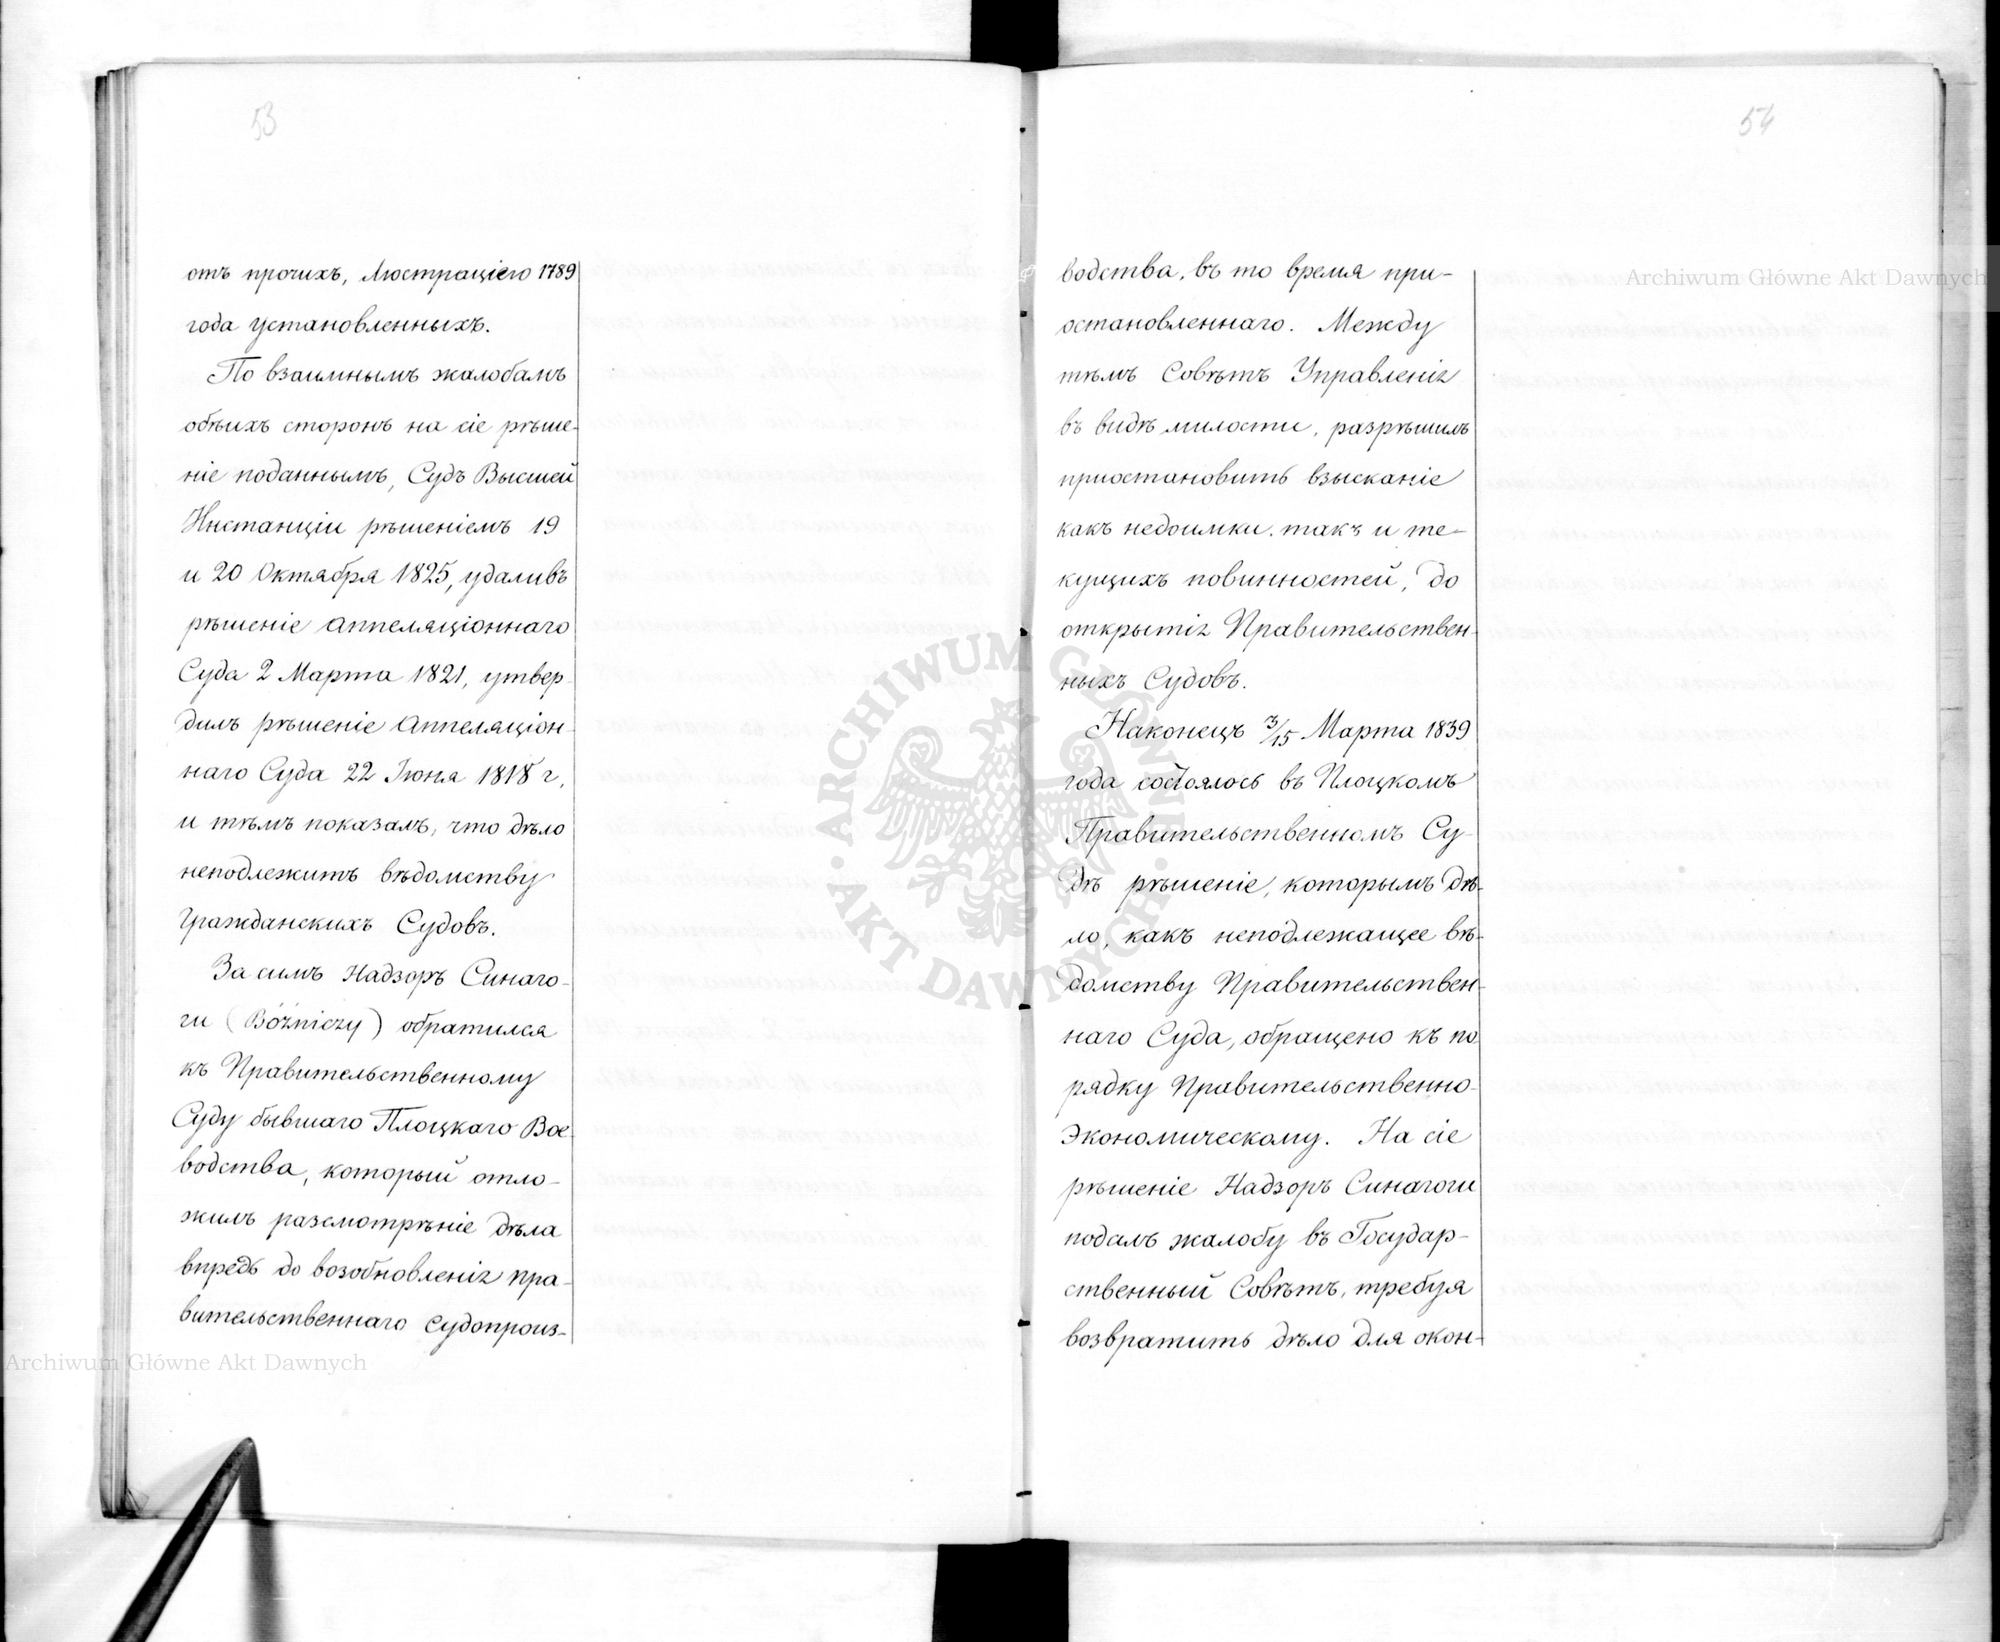 53
отъ прочихъ, Люстраціею 1789
года установленныхъ.
По взаимнымъ жалобамъ
обѣихъ сторонъ на сіе рѣше-
ніе поданнымъ, Судъ Высшей
Инстанціи рѣшеніемъ 19
и 20 Октября 1825, удаливъ
рѣшеніе Аппеляціоннаго
Суда 2 Марта 1821, утвер-
дилъ рѣшеніе Аппеляціон-
наго Суда 22 Іюня 1818 г,
и тѣмъ показалъ, что дѣло
неподлежитъ вѣдомству
Гражданскихъ Судовъ.
За симъ Надзоръ Синаго-
ги (Bóżniczy) обратился
къ Правительственному
Суду бывшаго Плоцкаго Вое-
водства, который отло-
жилъ разсмотрѣніе дѣла
впредь до возобновленія пра-
вительственнаго судопроиз-
54
водства, въ то время прі-
остановленнаго. Между
тѣмъ Совѣтъ Управленія
въ видѣ милости, разрѣшилъ
пріостановить взысканіе
какъ недоимки, такъ и те-
кущихъ повинностей, до
открытія Правительствен-
ныхъ Судовъ.
Наконецъ 3/15 Марта 1839
года состоялось въ Плоцкомъ
Правительственномъ Су-
дѣ рѣшеніе, которымъ дѣ-
ло, какъ неподлежащее вѣ-
домству Правительствен-
наго Суда, обращено къ по
рядку Правительственно-
Экономическому. На сіе
рѣшеніе Надзоръ Синагоги
подалъ жалобу въ Государ-
ственный Совѣтъ, требуя
возвратить дѣло для окон-
Archiwum Główne Akt Dawnych
Archiwum Główne Akt Dawnych
ARCHIWUM GŁÓWNE · AKT DAWNYCH ·